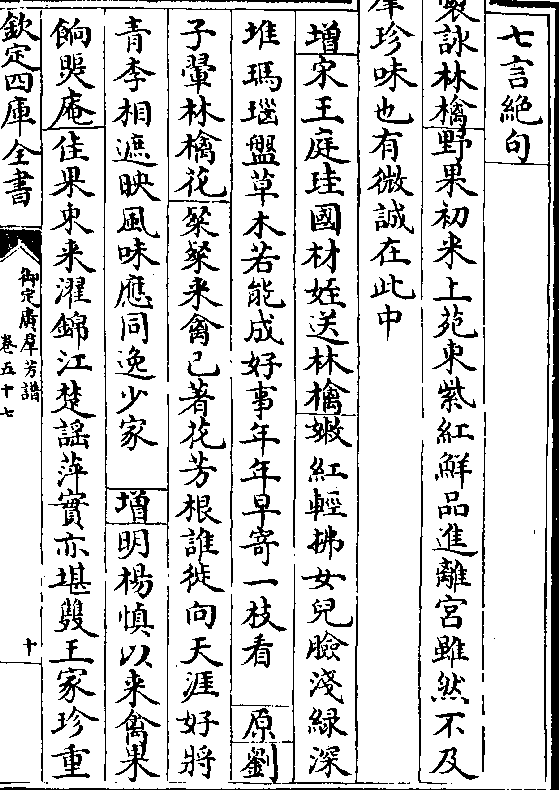 七言絶句
製詠林檎野果初來上苑東紫紅鮮品進離宮雖然不及
羣珍味也有微誠在此中
増宋王庭珪國材姪送林檎嫩紅輕拂女兒臉淺緑深
堆瑪瑙盤草木若能成好事年年早寄一枝看 原劉
子翬林檎花粲粲來禽已著花芳根誰徙向天涯好將
青李相遮映風味應同逸少家 増明楊慎以来禽果
餉㬰庵佳果東来濯錦江楚謡萍實亦堪雙王家珍重
欽定四庫全書
御定廣羣芳譜
卷五十七
十